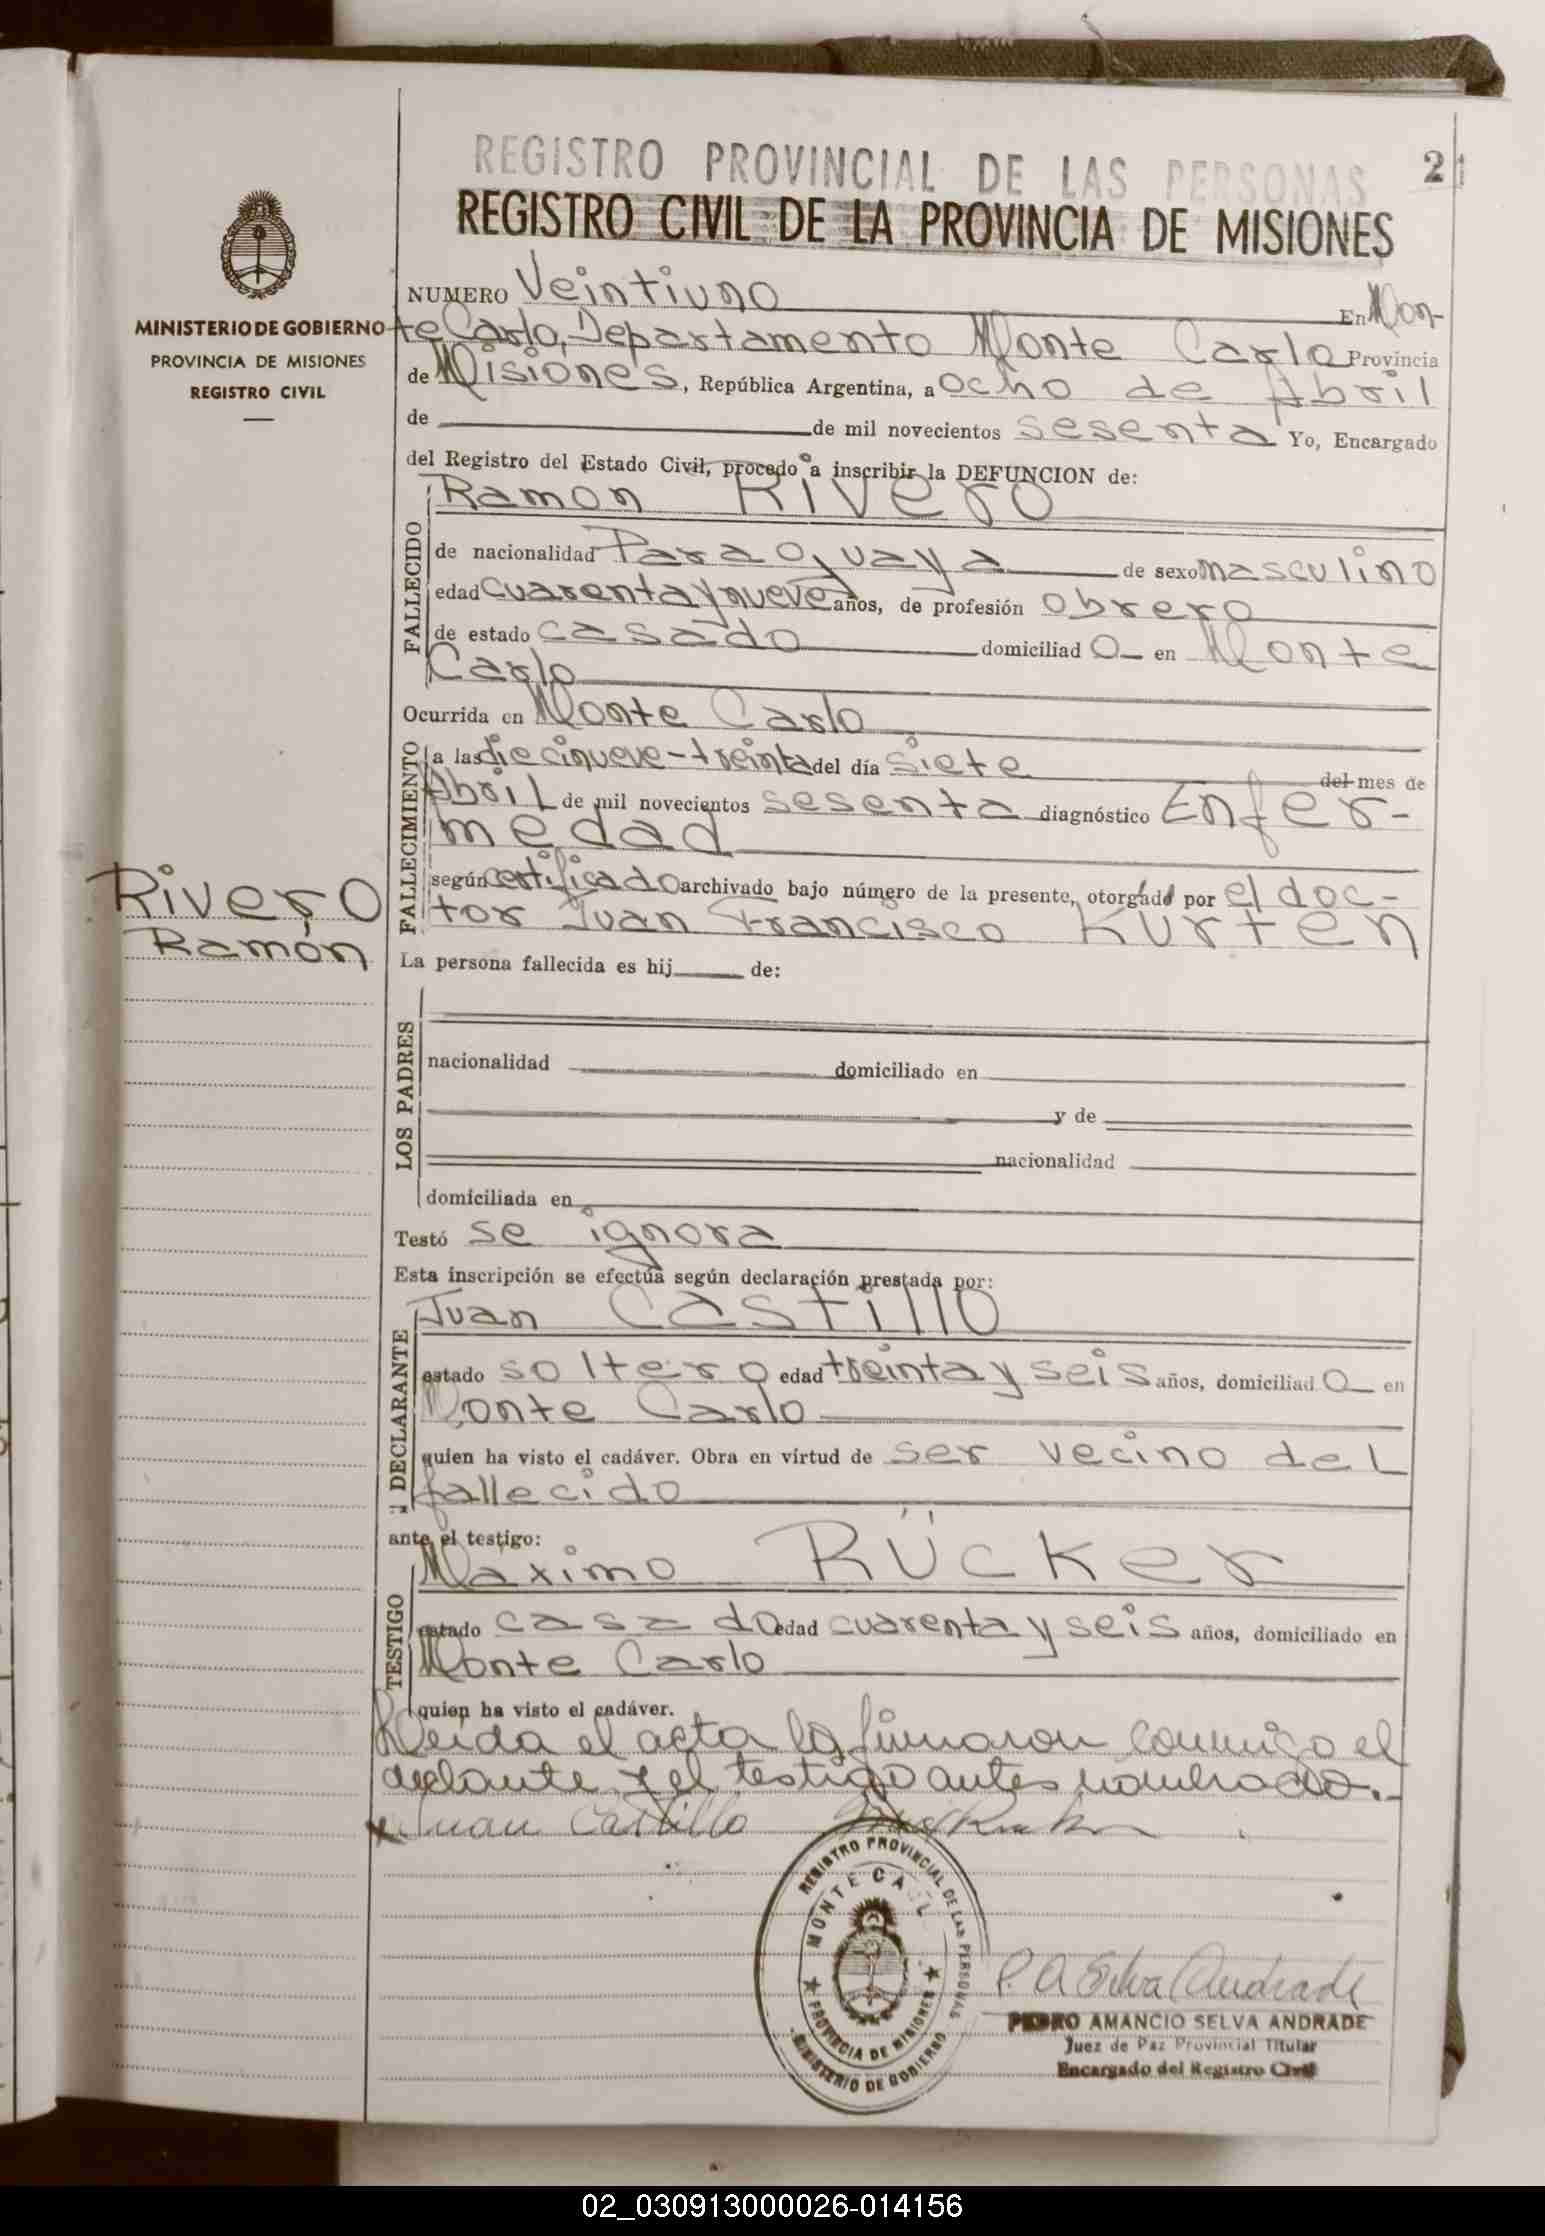 REGISTRO PROVINCIAL DE LAS PERSONAS
21
REGISTRO CIVIL DE LA PROVINCIA DE MISIONES
MINISTERIO DE GOBIERNO
PROVINCIA DE MISIONES
REGISTRO CIVIL
NUMERO Veintiuno En Mon-
te Carlo, Departamento Monte Carlo Provincia
de Misiones, República Argentina, a ocho de Abril
de de mil novecientos sesenta Yo, Encargado
del Registro del Estado Civil, procedo a inscribir la DEFUNCION de:
Ramon Rivero
FALLECIDO
de nacionalidad Paraguaya de sexo masculino
edad cuarenta y nueve años, de profesión obrero
de estado casado domiciliad o en Monte
Carlo
Ocurrida en Monte Carlo
FALLECIMIENTO
a las diecinueve-treinta del día siete del mes de
Abril de mil novecientos sesenta diagnóstico Enfer-
medad
según certificado archivado bajo número de la presente, otorgado por el doc-
tor Juan Francisco Kurten
Rivero
Ramón
La persona fallecida es hij de:
LOS PADRES
nacionalidad domiciliado en
y de
nacionalidad
domiciliada en
Testó se ignora
Esta inscripción se efectúa según declaración prestada por:
Juan CASTIllO
DECLARANTE
estado soltero edad treinta y seis años, domiciliad o en
Monte Carlo
quien ha visto el cadáver. Obra en virtud de ser vecino del
fallecido
ante el testigo:
Maximo RÜCKer
TESTIGO
estado casado edad cuarenta y seis años, domiciliado en
Monte Carlo
quien ha visto el cadáver.
Leida el acta la firmaron conmigo el
declante y el testigo antes nombrado.-
Juan Castillo
REGISTRO PROVINCIAL DE LAS PERSONAS
MONTE CARL
PROVINCIA DE MISIONES
MINISTERIO DE GOBIERNO
P. A Selva Andrade
PEDRO AMANCIO SELVA ANDRADE
Juez de Paz Provincial Titular
Encargado del Registro Civil
02_030913000026-014156